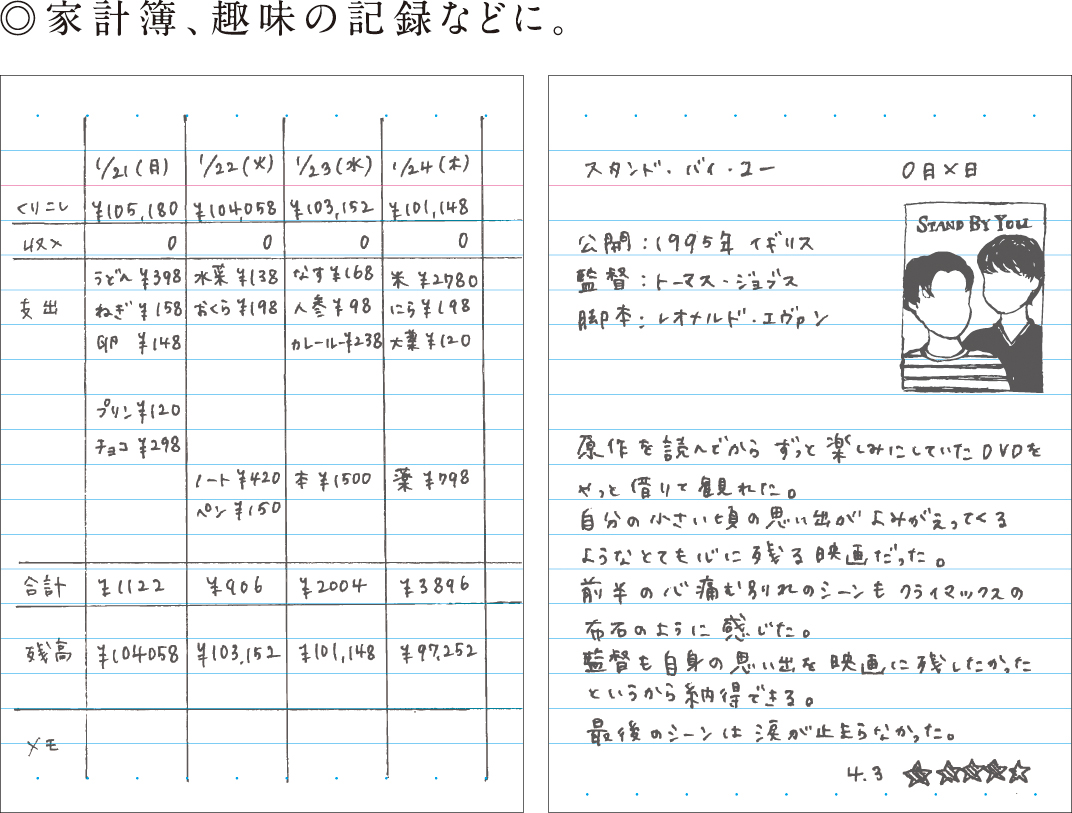 ◎家計簿、趣味の記録などに。
1/21(月) 1/22(火) 1/23(水) 1/24(木)
くりこし ¥105,180 ¥104,058 ¥103,152 ¥101,148
収入 0 0 0 0
支出 うどん ¥398 水菜 ¥138 なす ¥168 米 ¥2780
ねぎ ¥158 おくら ¥198 人参 ¥98 にら ¥198
卵 ¥148 カレールー ¥238 大葉 ¥120
プリン ¥120
チョコ ¥298
ノート ¥420 本 ¥1500 薬 ¥798
ペン ¥150
合計 ¥1122 ¥906 ¥2004 ¥3896
残高 ¥104058 ¥103,152 ¥101,148 ¥97,252
メモ
スタンド・バイ・ユー 〇月×日
STAND BY YOU
公開:1995年 イギリス
監督:トーマス・ジョブス
脚本:レオナルド・エヴァン
原作を読んでから ずっと楽しみにしていたDVDを
やっと借りて観れた。
自分の小さい頃の思い出が よみがえってくる
ようなとても心に残る映画だった。
前半の心痛む別れのシーンも クライマックスの
布石のように感じた。
監督も自身の思い出を映画に残したかった
というから納得できる。
最後のシーンは涙が止まらなかった。
4.3 ★★★★☆